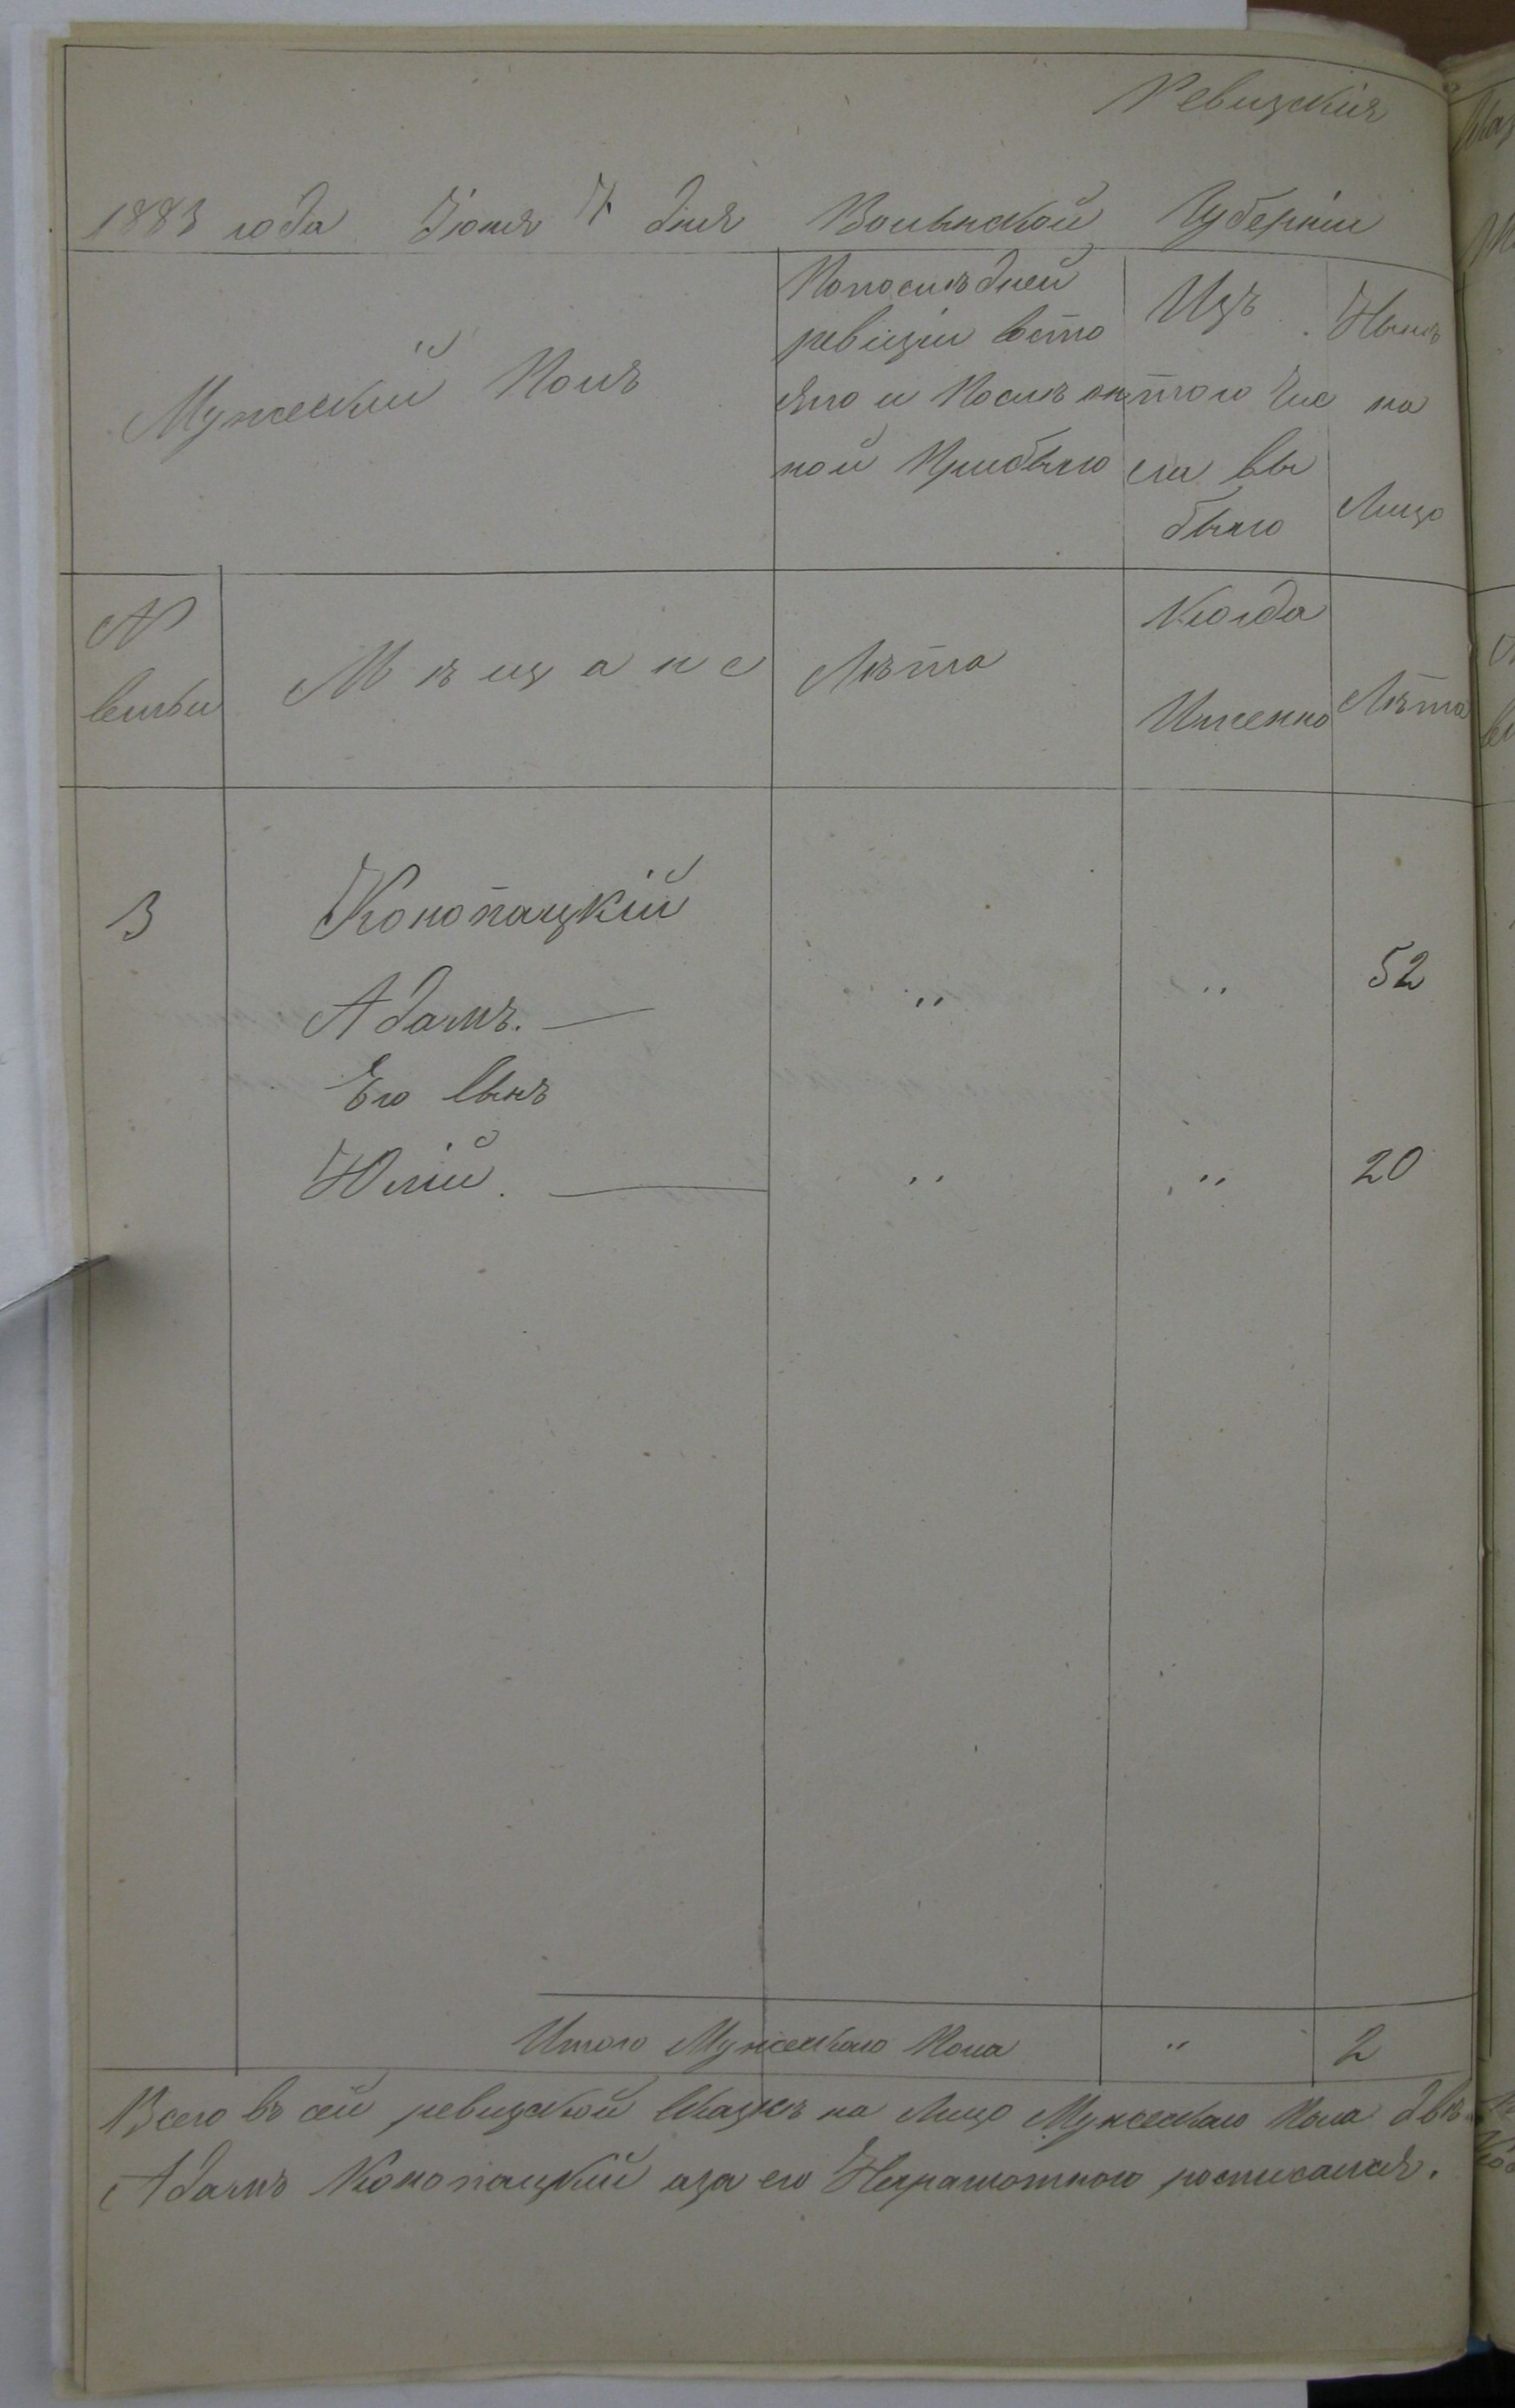 Ревизскія
1883 года Іюня 7 дня Волынской Губерніи
Мужескій Полъ
Попослѣдней
ревизіи состо
яло и Послѣ он
ной Прибыло
Изъ
того Чис
ла вы
было
Нынѣ
на
Лицо
№
семьи
Мѣщане
Лѣта
Когда
Именно
Лѣта
3 Конопацкій
Адамъ. — " " 52
Его Сынъ
Юлій. — " " 20
Итого Мужескаго Пола " 2
Всего въ сей ревизской Сказкѣ на Лицо Мужескаго Пола двѣ
Адамъ Конопацкій аза его Неграмотного росписался.